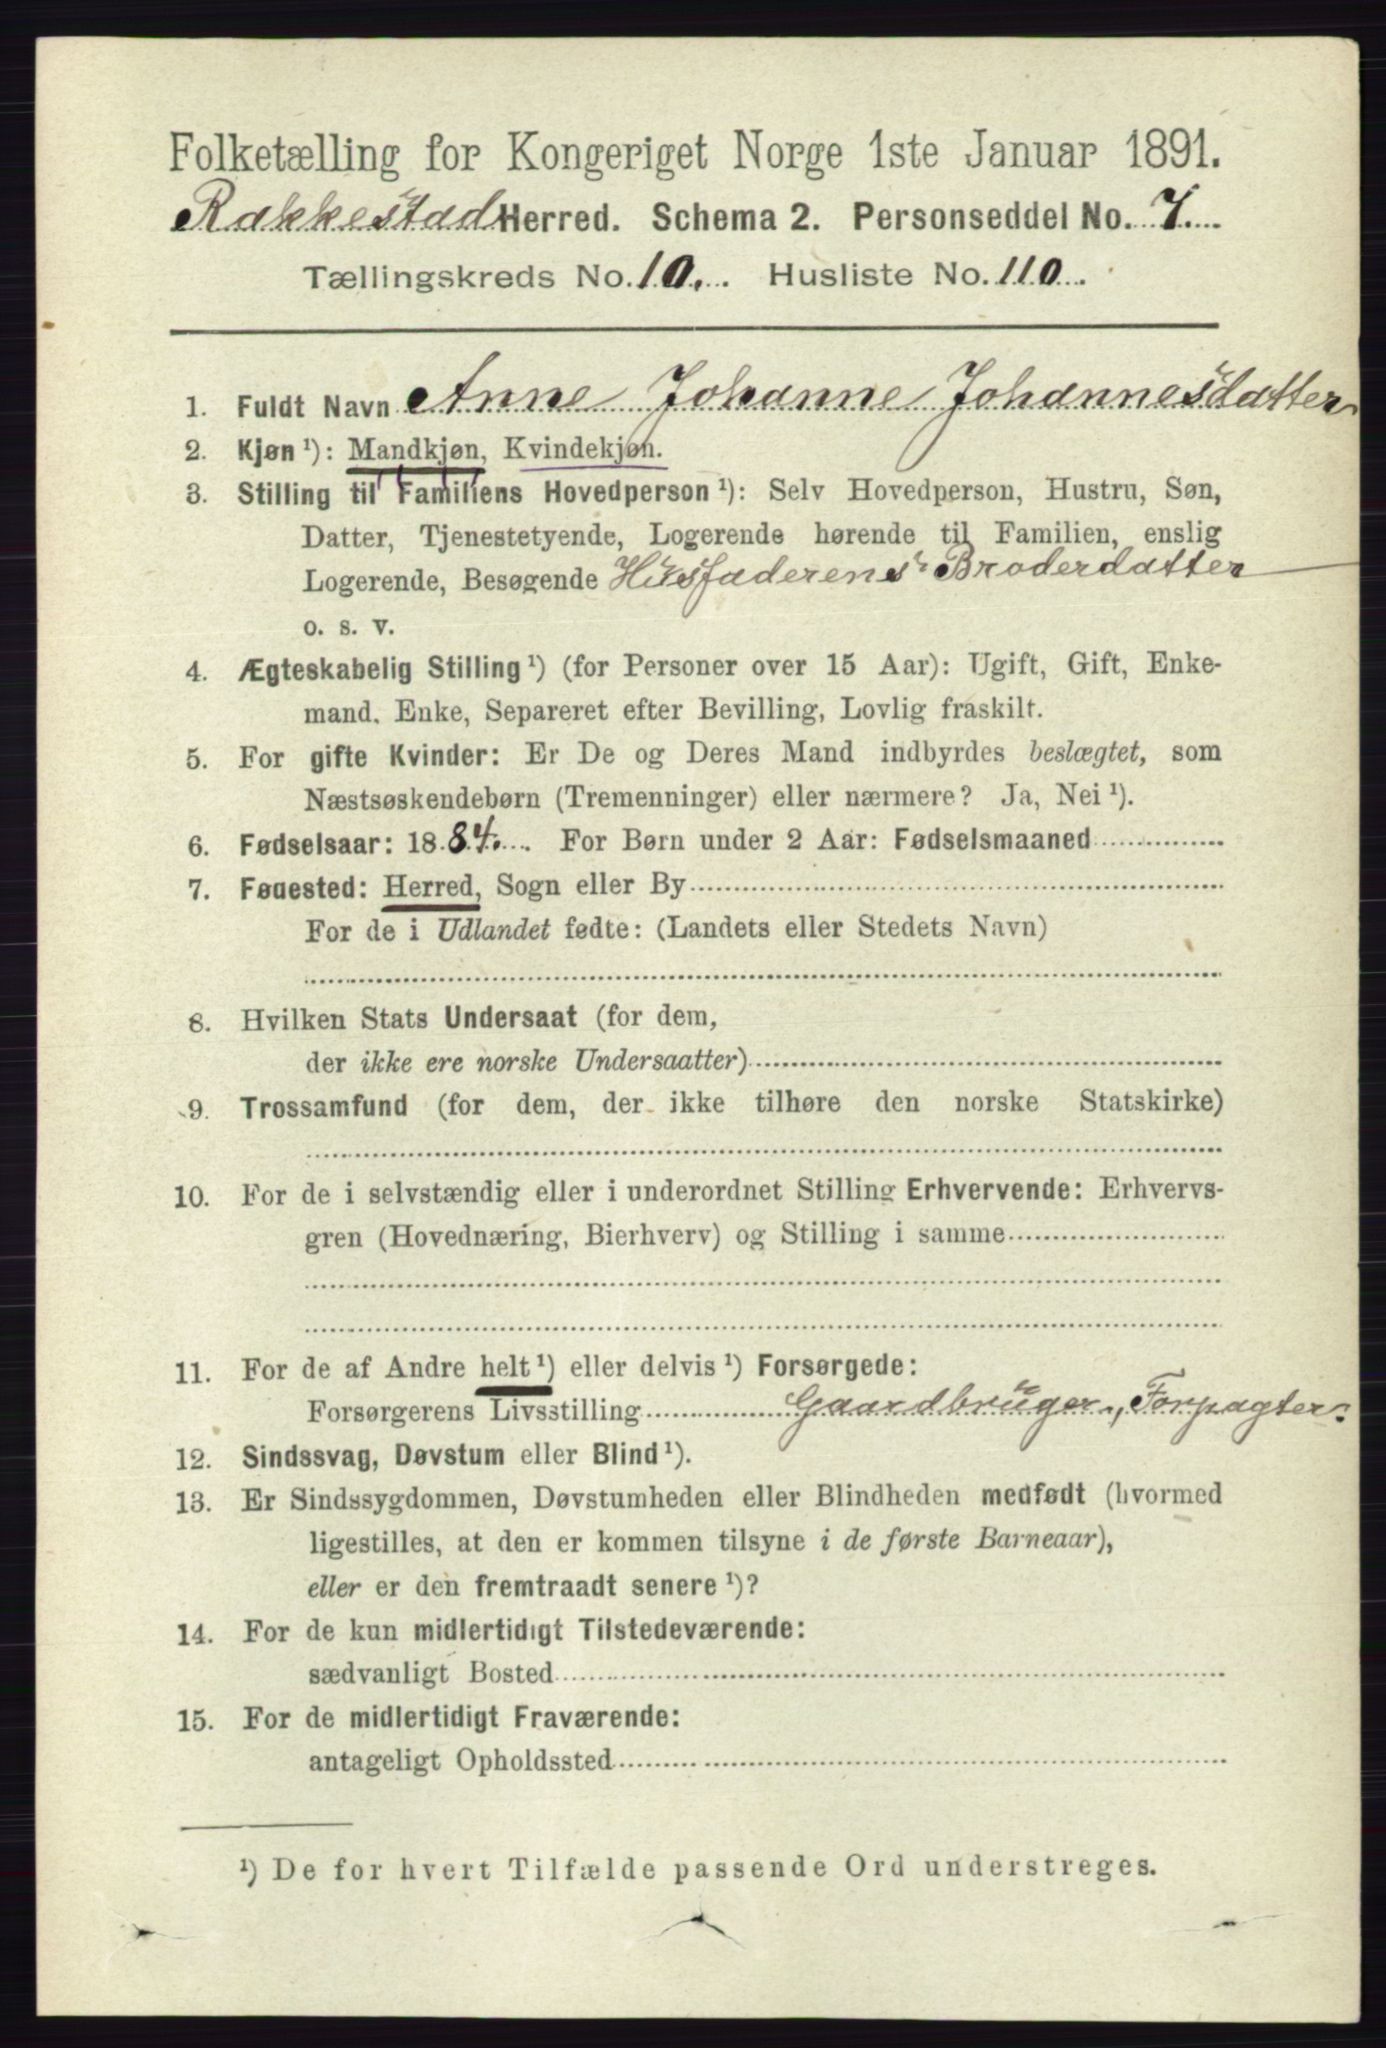 Folketælling for Kongeriget Norge 1ste Januar 1891.
Rakkestad Herred. Schema 2. Personseddel No. 7.
Tællingskreds No. 10. Husliste No. 110.
1. Fuldt Navn Anne Johanne Johannesdatter
2. Kjøn¹): Mandkjøn, Kvindekjøn.
3. Stilling til Familiens Hovedperson¹): Selv Hovedperson, Hustru, Søn,
Datter, Tjenestetyende, Logerende hørende til Familien, enslig
Logerende, Besøgende Husfaderens Broderdatter
o. s. v.
4. Ægteskabelig Stilling¹) (for Personer over 15 Aar): Ugift, Gift, Enke-
mand, Enke, Separeret efter Bevilling, Lovlig fraskilt.
5. For gifte Kvinder: Er De og Deres Mand indbyrdes beslægtet, som
Næstsøskendebørn (Tremenninger) eller nærmere? Ja, Nei¹).
6. Fødselsaar: 1884. For Børn under 2 Aar: Fødselsmaaned
7. Fødested: Herred, Sogn eller By
For de i Udlandet fødte: (Landets eller Stedets Navn)
8. Hvilken Stats Undersaat (for dem,
der ikke ere norske Undersaatter)
9. Trossamfund (for dem, der ikke tilhøre den norske Statskirke)
10. For de i selvstændig eller i underordnet Stilling Erhvervende: Erhvervs-
gren (Hovednæring, Bierhverv) og Stilling i samme
11. For de af Andre helt¹) eller delvis¹) Forsørgede:
Forsørgerens Livsstilling Gaardbruger, Forpagter.
12. Sindssvag, Døvstum eller Blind¹).
13. Er Sindssygdommen, Døvstumheden eller Blindheden medfødt (hvormed
ligestilles, at den er kommen tilsyne i de første Barneaar),
eller er den fremtraadt senere¹)?
14. For de kun midlertidigt Tilstedeværende:
sædvanligt Bosted
15. For de midlertidigt Fraværende:
antageligt Opholdssted
¹) De for hvert Tilfælde passende Ord understreges.